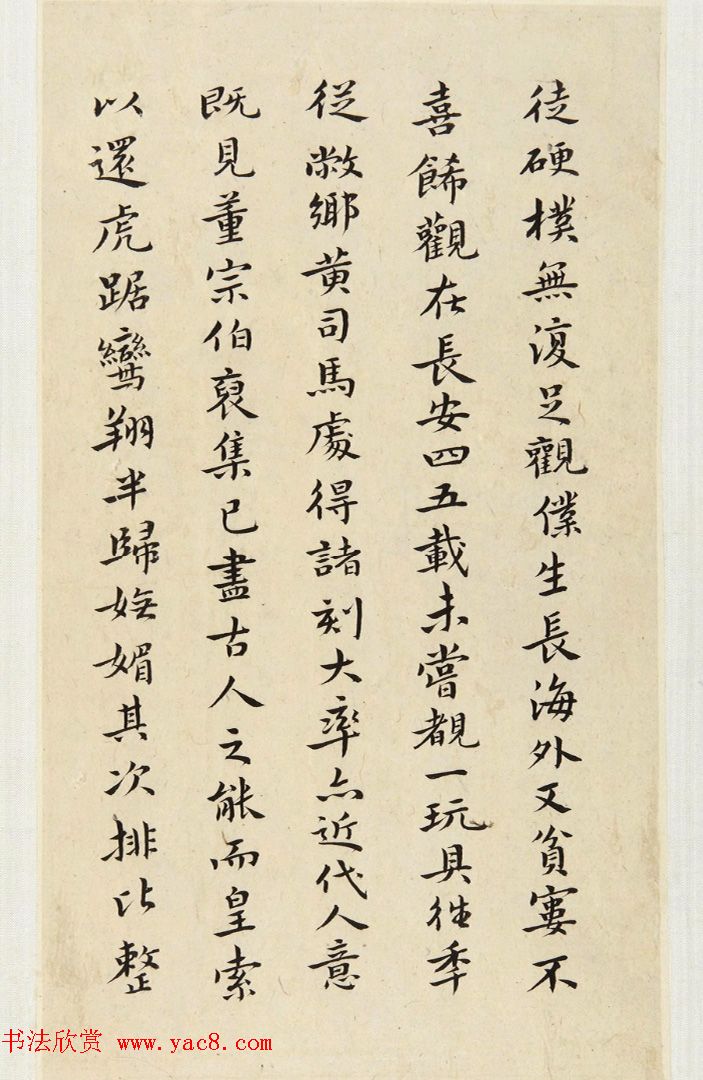 徒硬樸無復足觀僕生長海外又貧窶不
喜餙觀在長安四五載未嘗覩一玩具徃季
從敝鄉黄司馬處得諸刻大率亦近代人意
既見董宗伯裒集已盡古人之能而皇索
以還虎踞鸞翔半歸嫵媚其次排比整
书法欣赏 www.yac8.com